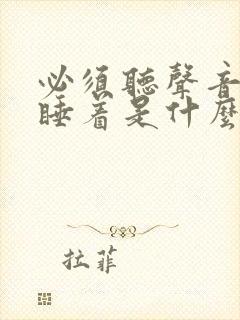 必須聽聲音
睡着是什麼
拉菲